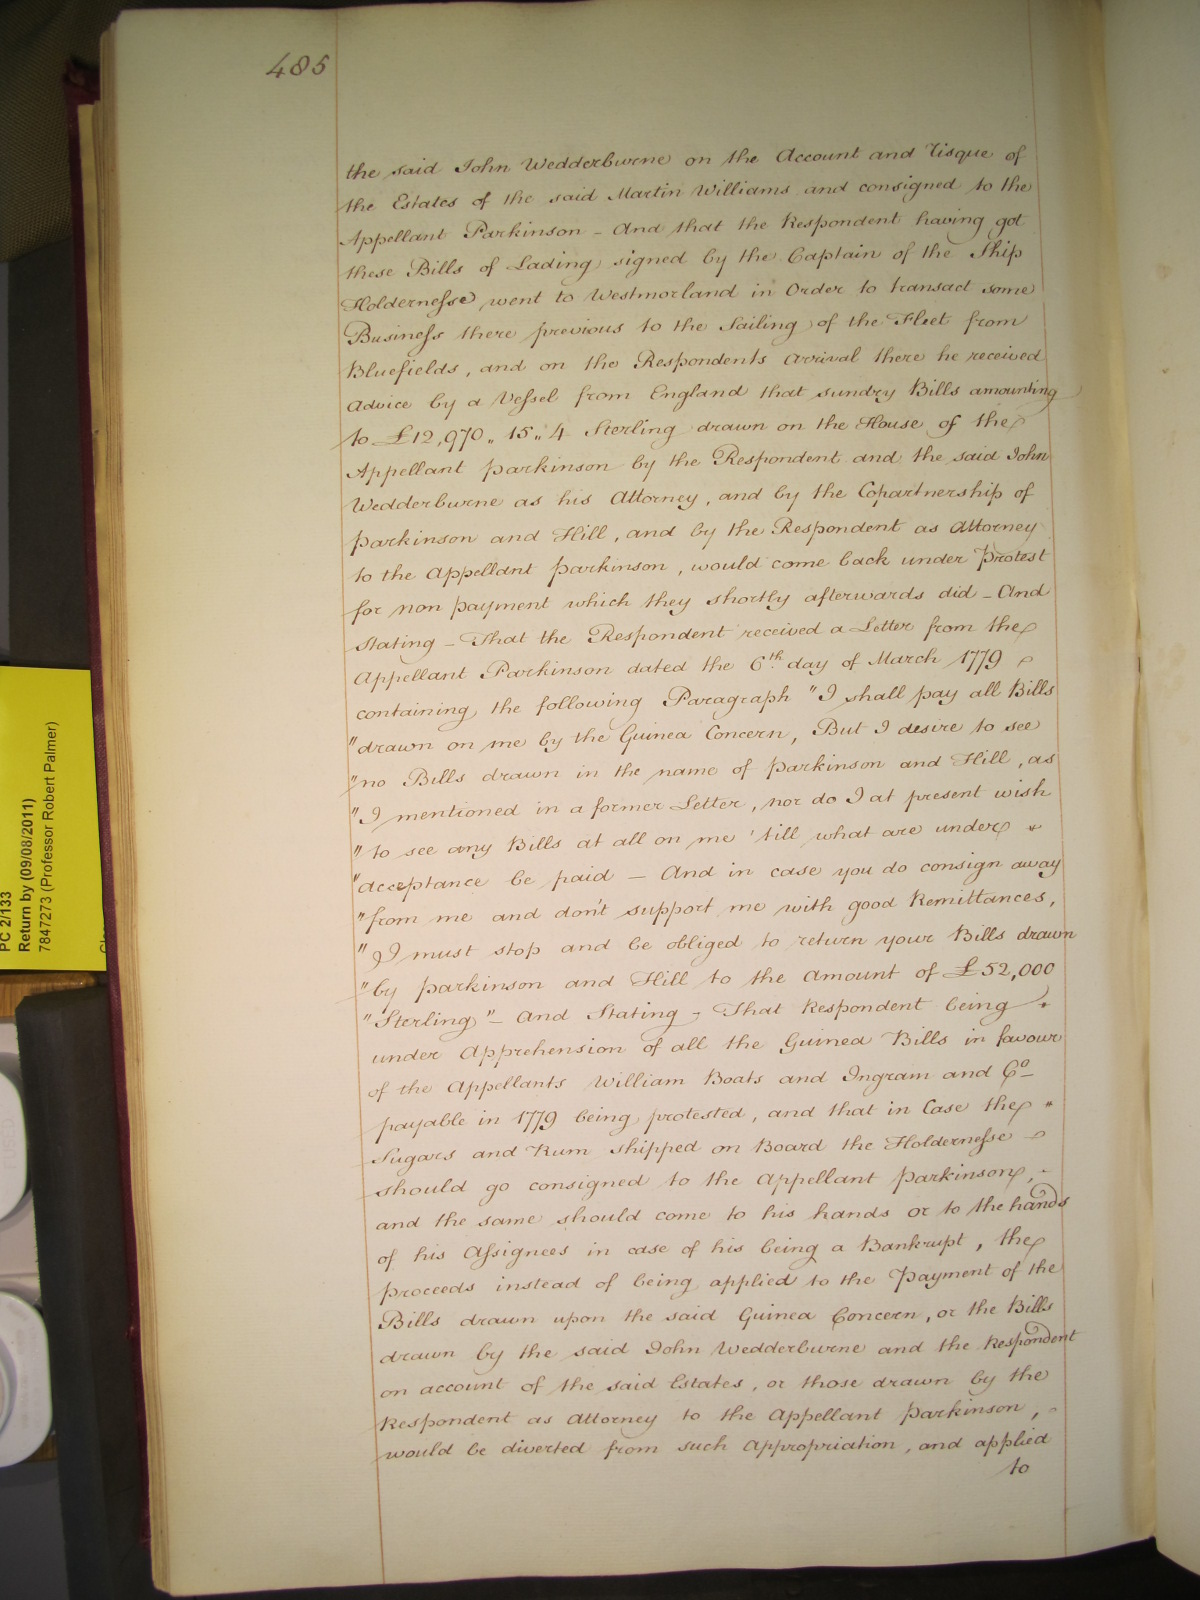 485
the said John Wedderburne on the Account and risque of
the Estates of the said Martin Williams and consigned to the
Appellant Parkinson – And that the Respondent having got
these Bills of Lading signed by the Captain of the Ship
Holdernesse went to Westmorland in Order to transact some
Business there previous to the Sailing of the Fleet from
Bluefields, and on the Respondents Arrival there he received
Advice by a Vessel from England that sundry Bills amounting
to £12,970„ 15„ 4 Sterling drawn on the House of the
Appellant Parkinson by the Respondent and the said John
Wedderburne as his Attorney, and by the Copartnership of
Parkinson and Hill, and by the Respondent as Attorney
to the Appellant Parkinson, would come back under Protest
for non payment which they shortly afterwards did – And
Stating – That the Respondent received a Letter from the
Appellant Parkinson dated the 6th day of March 1779
containing the following Paragraph "I shall pay all Bills
"drawn on me by the Guinea Concern, But I desire to see
"no Bills drawn in the name of Parkinson and Hill, as
"I mentioned in a former Letter, nor do I at present wish
"to see any Bills at all on me 'till what are under
"acceptance be paid – And in case you do consign away
"from me and don't support me with good Remittances,
"I must stop and be obliged to return your Bills drawn
"by Parkinson and Hill to the Amount of £52,000
"Sterling" – And Stating – That Respondent being
under Apprehension of all the Guinea Bills in favour
of the Appellants William Boats and Ingram and Co.
payable in 1779 being protested, and that in Case the
Sugars and Rum shipped on Board the Holdernesse
should go consigned to the Appellant Parkinson,
and the same should come to his hands or to the hands
of his Assignees in case of his being a Bankrupt, the
proceeds instead of being applied to the Payment of the
Bills drawn upon the said Guinea Concern, or the Bills
drawn by the said John Wedderburne and the Respondent
on account of the said Estates, or those drawn by the
Respondent as Attorney to the Appellant Parkinson,
would be diverted from such Appropriation, and applied
to
PC 2/133
Return by (09/08/2011)
7847273 (Professor Robert Palmer)